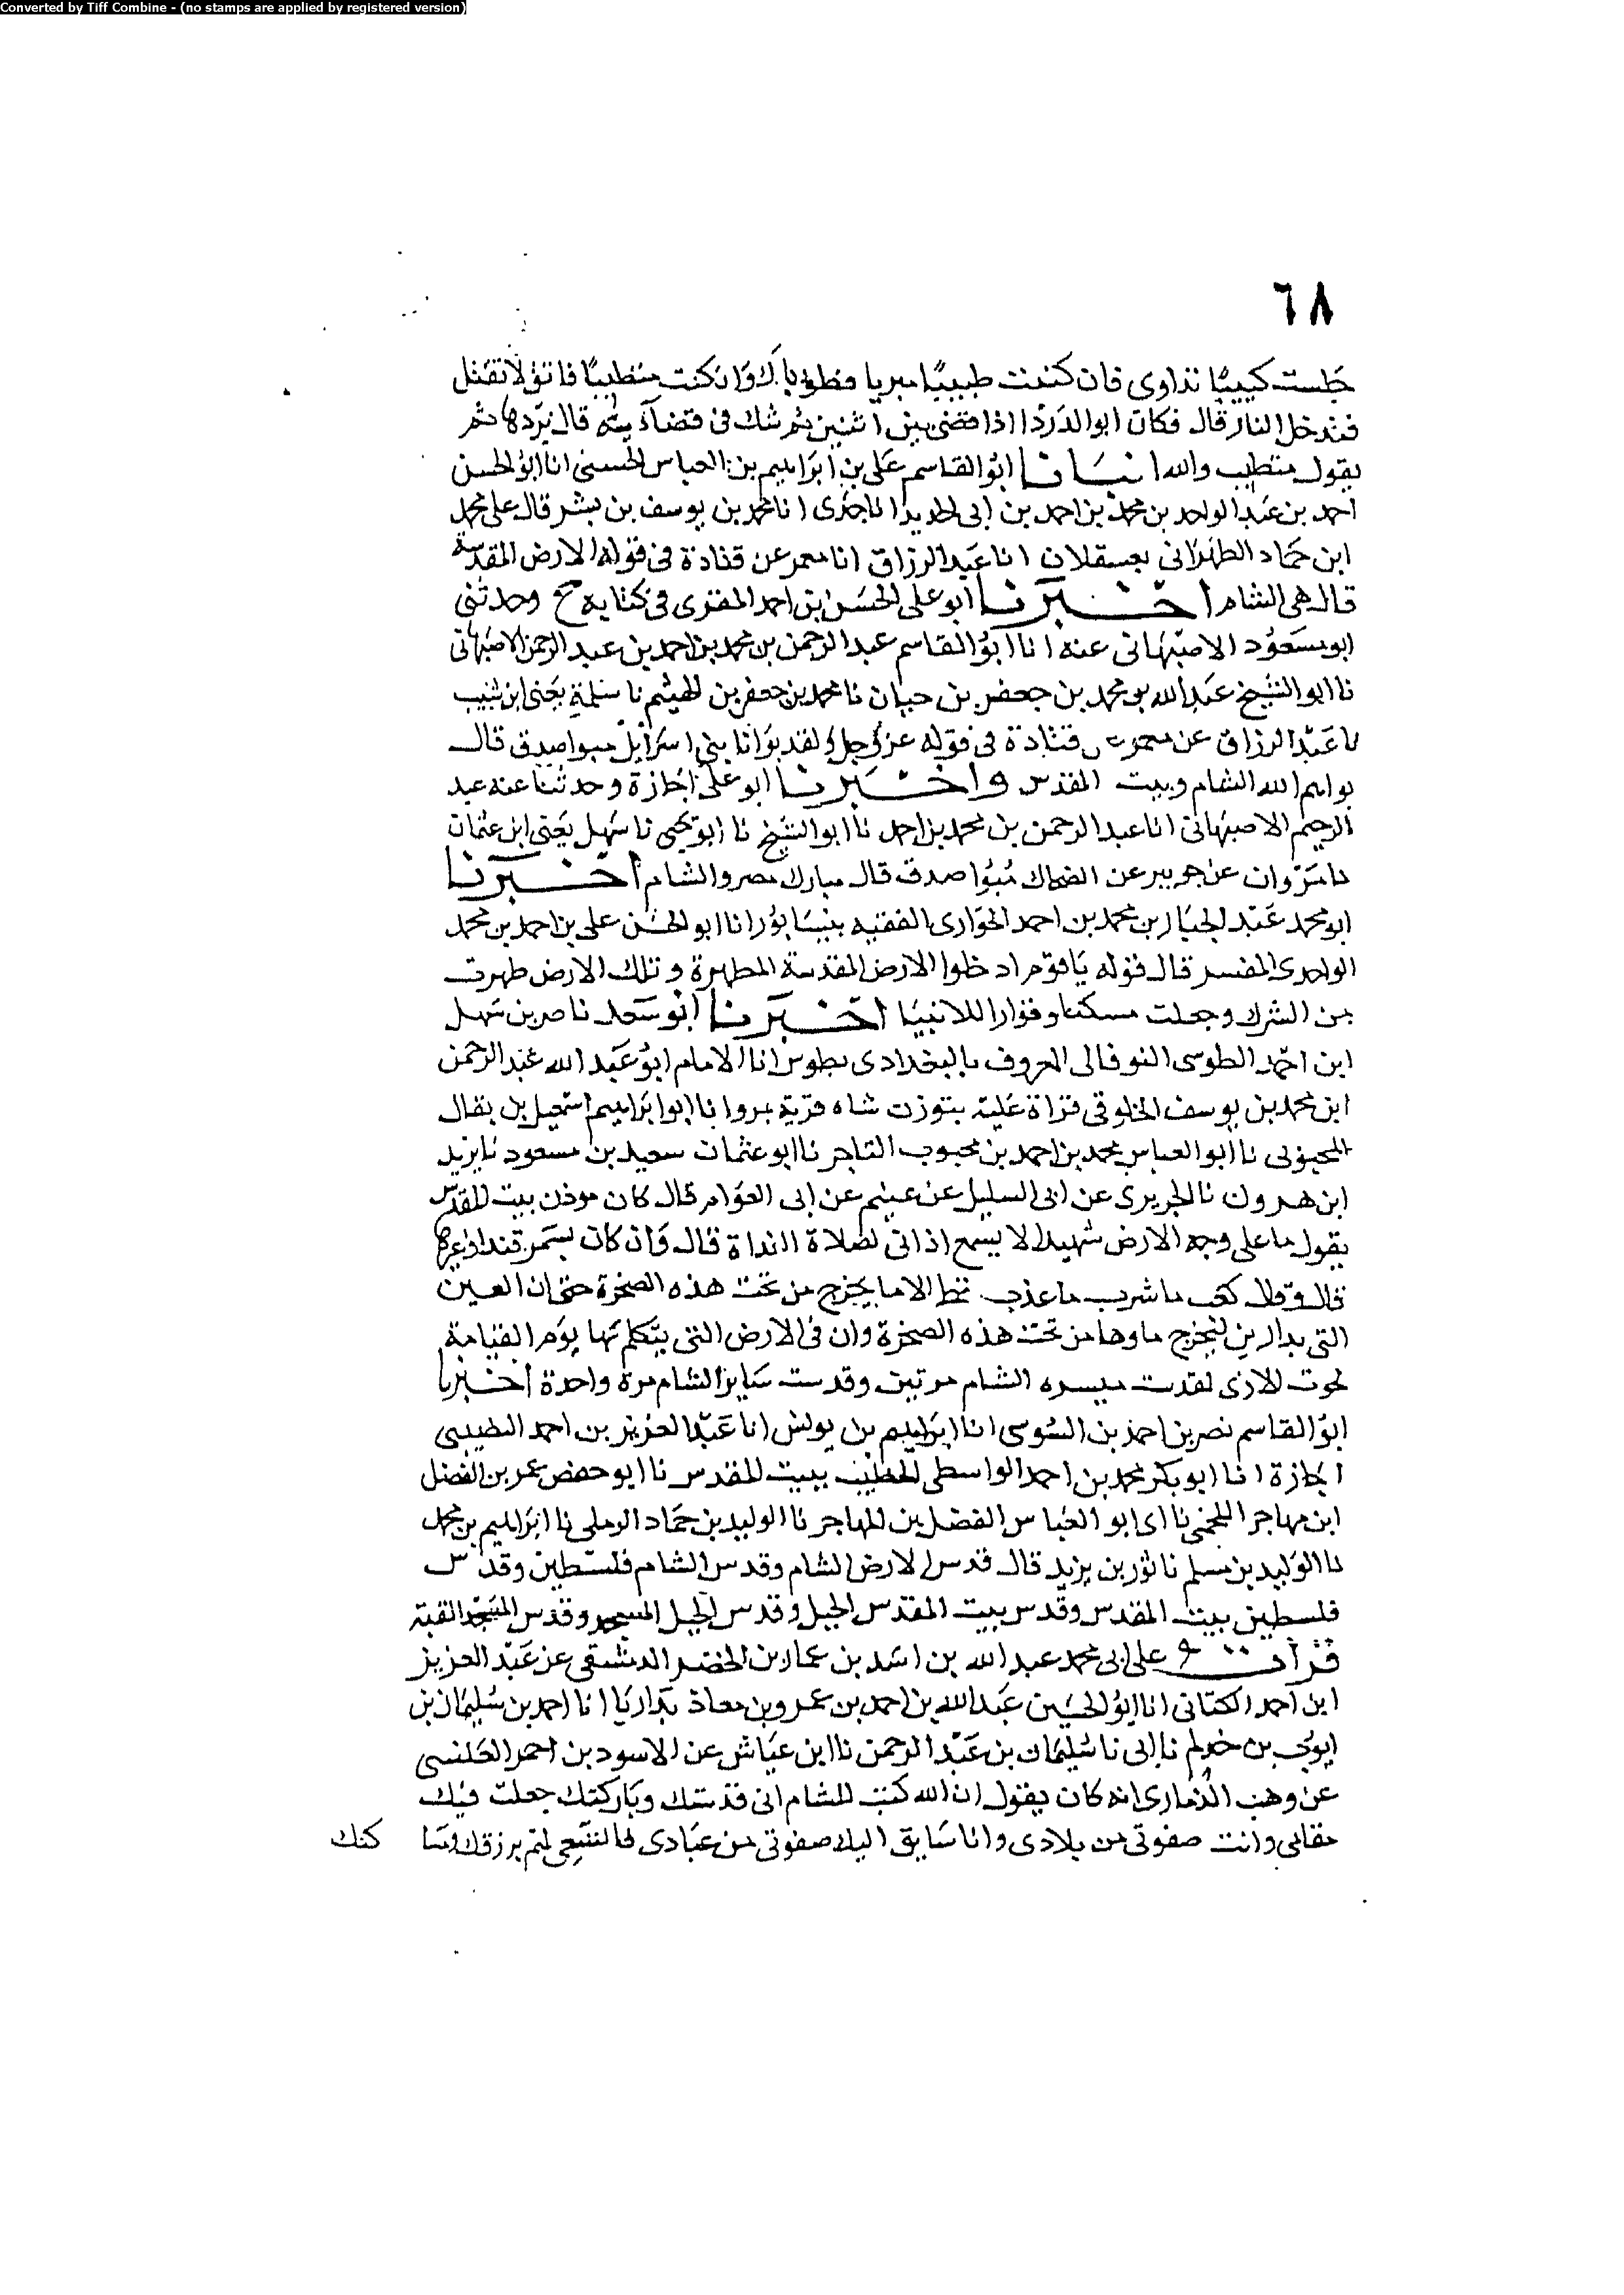 Converted by Tiff Combine - (no stamps are applied by registered version)
٦٨
جلست كييبًا تداوى فان كنت طبيبًا مبريا فطوباك وان كنت متطببًا فاتق لا تقتل
فتدخل النار قال فكان ابو الدردا اذا قضى بين اثنين ثم شك فى قضآئه قال بردها ثم
يقول متطبب والله انبانا ابو القاسم على بن ابراهيم بن العباس الحسنى انا ابو الحسن
احمد بن عبد الواحد بن محمد بن احمد بن ابى الحديد انا جدى انا محمد بن يوسف بن بشر قال على محمد
ابن حماد الطهرانى بعسقلان انا عبد الرزاق انا معمر عن قتادة فى قوله الارض المقدسة
قال هى الشام اخبرنا ابو على الحسن بن احمد المقرى فى كتابه ح وحدثنى
ابو مسعود الاصبهانى عنه انا ابو القاسم عبد الرحمن بن محمد بن احمد بن عبد الرحمن الاصبهانى
نا ابو الشيخ عبد الله بن محمد بن جعفر بن حيان نا محمد بن جعفر بن الهيثم نا سلمة يعنى ابن شبيب
نا عبد الرزاق عن معمر عن قتادة فى قوله عز وجل ولقد بوانا بنى اسرايل مبوا صدق قال
بواهم الله الشام وبيت المقدس واخبرنا ابو على اجازة وحدثنا عنه عبد
الرحيم الاصبهانى انا عبد الرحمن بن محمد بن احمد نا ابو الشيخ نا ابو يحيى نا سهل يعنى ابن عثمان
نا مروان عن جويبر عن الضحاك مُبوّا صدق قال مبارك مصر والشام اخبرنا
ابو محمد عبد الجبار بن محمد بن احمد الخوارى الفقيه بنيسابور انا ابو الحسن على بن احمد بن محمد
الواحدى المفسر قال قوله يا قوم ادخلوا الارض المقدسة المطهرة وتلك الارض طهرت
من الشرك وجعلت مسكنا وقرارا للانبيا اخبرنا ابو سعد ناصر بن سهل
ابن احمد الطوسى النوقانى المعروف بالبغدادى بطوس انا الامام ابو عبد الله عبد الرحمن
ابن محمد بن يوسف قراة عليه شاه قرية بمروا نا ابو ابراهيم اسمعيل بن يقال
المحبوبى نا ابو العباس محمد بن احمد بن محبوب التاجر نا ابو عثمان سعيد بن مسعود نا يزيد
ابن هرون نا الجريرى عن ابى السليل عن غنيم عن ابى العوام قال كان موذن بيت المقدس
يقول ما على وجه الارض شهيد لا يسمع اذانى لصلاة الغداة قال وان كان بسمرقند
قال وقال كعب ما شرب ما عذب قط الا ما يخرج من تحت هذه الصخرة حتى ان العين
التى بدارين ليخرج ماوها من تحت هذه الصخرة وان فى الارض التى يتكلم بها يوم القيامة
لقدست ميسره الشام مرتين وقدست ساير الشام مرة واحدة اخبرنا
ابو القاسم نصر بن احمد بن السوسى انا ابراهيم بن يونس انا عبد العزيز بن احمد النصيبى
اجازة انا ابو بكر محمد بن احمد الواسطى الخطيب ببيت المقدس نا ابو حفص عمر بن الفضل
ابن مهاجر اللخمى نا ابى ابو العباس الفضل بن المهاجر نا الوليد بن حماد الرملى نا ابراهيم بن محمد
نا الوليد بن مسلم نا ثور بن يزيد قال قدس الارض الشام وقدس الشام فلسطين وقدس
فلسطين بيت المقدس وقدس بيت المقدس الجبل وقدس الجبل المسجد وقدس المسجد القبة
قرات على ابى محمد عبد الله بن اسد بن عمار بن الخضر الدمشقى عن عبد العزيز
ابن احمد الكتانى انا ابو الحسين عبد الله بن احمد بن عمرو بن معاذ بداريا انا احمد بن سليمان بن
ايوب بن حذلم نا ابى نا سليمان بن عبد الرحمن نا ابن عياش عن الاسود بن احمر العنسى
عن وهب الذمارى انه كان يقول ان الله كتب للشام انى قدستك وباركتك جعلت فيك
مقامى وانت صفوتى من بلادى وانا سايق اليك صفوتى من عبادى فاتسعى لهم برزقك
كنك